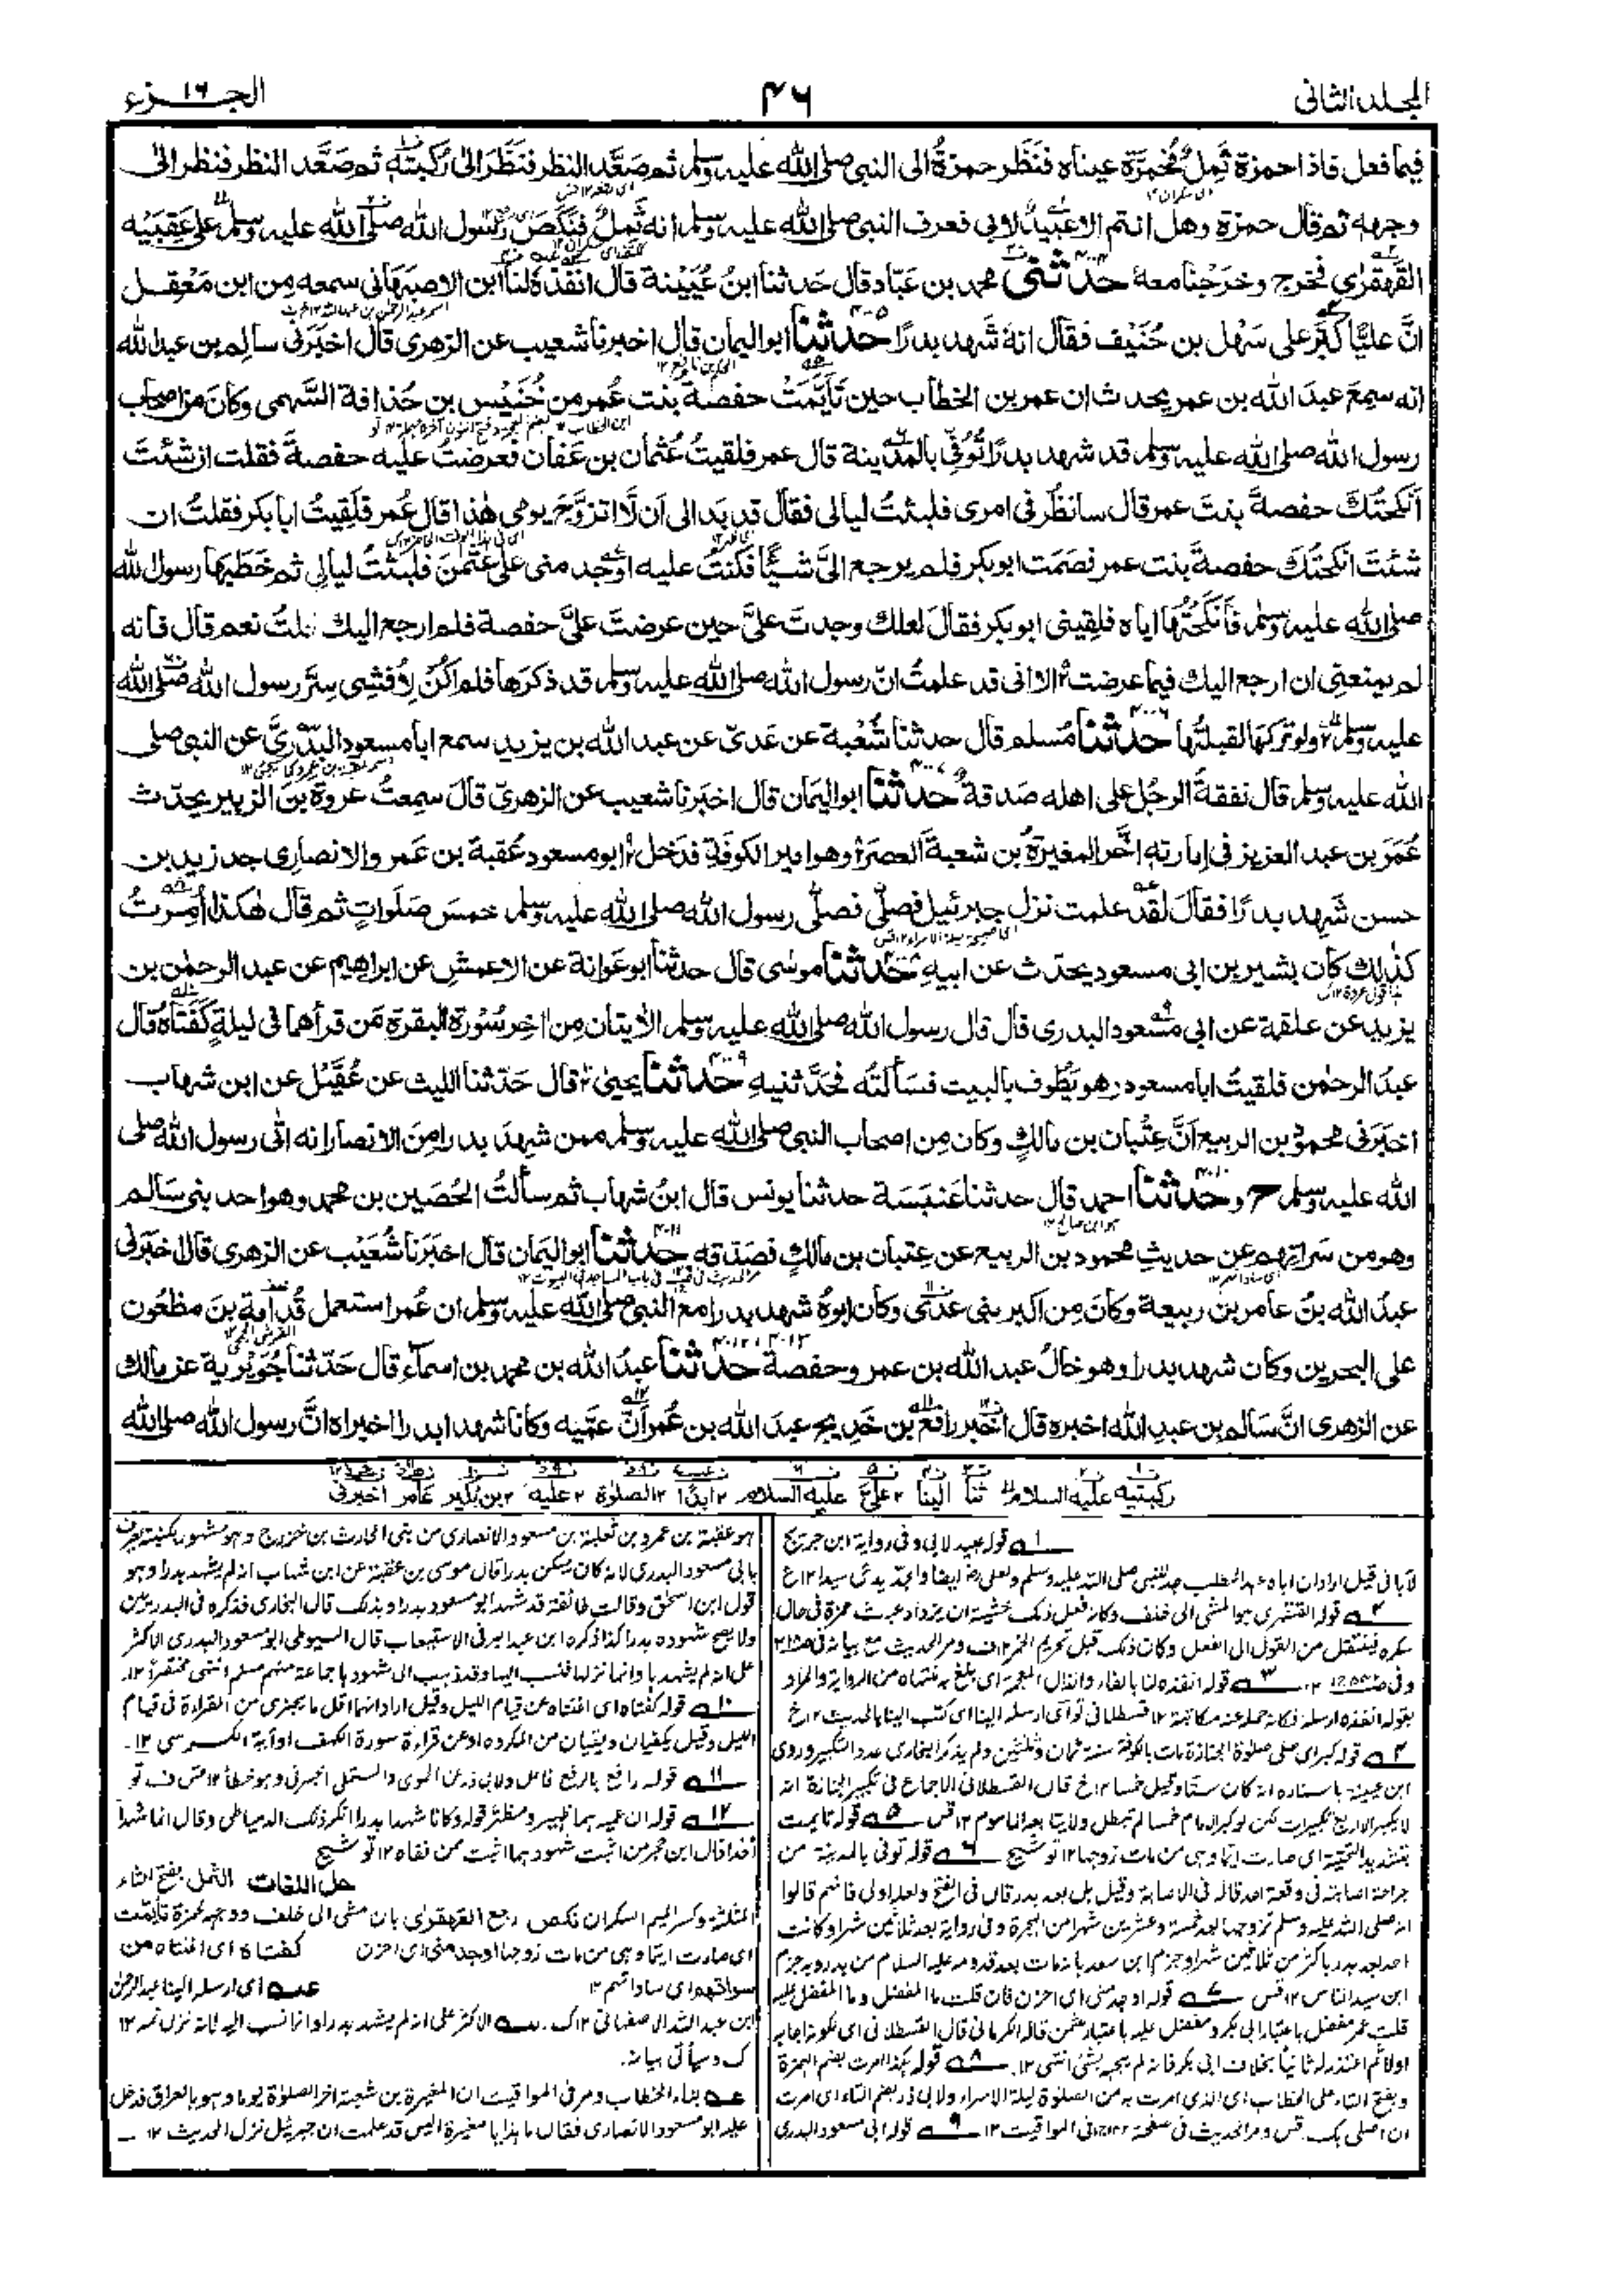 المجلد الثانی
۴۶
الجزء ۱۶
فيما فعل فاذا حمزة ثَمِلٌ مُحْمَرَّة عيناه فنَظَر حمزةُ الى النبي صلى الله عليه وسلم ثم صعَّد النظر فنَظَرَ الىٰ رُكبتهٖ ثم صَعَّد النظر فنظر الىٰ
وجهه ثم قال حمزة وهل انتم الا عَبيدٌ لابی فعرف النبی صلى الله عليه وسلم انه ثَمِلٌ فنَكَصَ رسول الله صلى الله عليه وسلم على عَقِبَيْه
القَهْقَرٰى فخرج وخَرَجْنا معه حدثنی محمد بن عبّاد قال حدثنا ابنُ عُيَيْنة قال انفذهُ لنا ابن الاصبهانی سمعه من ابن مَعْقِل
انَّ عليًّا كَبَّر على سَهْل بن حُنَيْف فقال انهٗ شَهد بدرًا حدثنا ابو اليمان قال اخبرنا شعيب عن الزهرى قال اخبرَنی سالم بن عبد الله
انه سمعَ عبدَ الله بن عمر يحدث ان عمر بن الخطاب حين تَأَيَّمَتْ حفصةُ بنت عُمر من خُنَيْس بن حُذافة السَّهمى وكان من اصحاب
رسول الله صلى الله عليه وسلم قد شهد بدرًا تُوُفّى بالمدينة قال عمر فلقيتُ عُثمان بن عَفان فعرضتُ عليه حفصةَ فقلت ان شئتَ
اَنكحتُك حفصةَ بنتَ عمر قال سانظُر فى امرى فلبثتُ ليالى فقال قد بدا لى اَن لّا اتزوَّجَ يومى هٰذا قال عُمر فلَقِيتُ ابا بكر فقلتُ ان
شئتَ انكحتُك حفصةَ بنت عمر فصَمَت ابو بكر فلم يرجع الىَّ شَيْئًا فكنتُ عليه اوجد منى على عثمٰن فلبثتُ ليالِى ثم خَطَبها رسول الله
صلى الله عليه وسلم فَاَنكحتُها اياه فلقينى ابو بكر فقال لعلك وجدتَ علىَّ حين عرضتَ علىَّ حفصة فلم ارجع اليك قلتُ نعم قال فانه
لم يمنعنى ان ارجع اليك فيما عرضتَ الا انى قد علمتُ انّ رسول الله صلى الله عليه وسلم قد ذكرَها فلم اكُن لِاُفشِى سِرَّ رسول الله صلى الله
عليه وسلم ولو تركها لقبلتُها حدثنا مُسلم قال حدثنا شُعْبة عن عَدىّ عن عبد الله بن يزيد سمع ابا مسعود البَدْرىَّ عن النبى صلى
الله عليه وسلم قال نفقةُ الرجُل على اهله صَدقةٌ حدثنا ابو اليمان قال اخبَرنا شعيب عن الزهرىّ قال سمعتُ عروةَ بنَ الزبير يحدّث
عُمَرَ بن عبد العزيز فى اِمارته اَخَّر المغيرةُ بن شعبةَ العصرَ وهو امير الكوفة فدَخل ابو مسعود عُقبة بن عَمرو الانصارِى جد زيد بن
حسن شَهِد بدرًا فقال لقد علمت نزل جبرئيل فصلّى فصلّى رسول الله صلى الله عليه وسلم خمسَ صَلَواتٍ ثم قال هٰكذا اُمِرتُ
كذٰلك كان بشير بن ابى مسعود يحدّث عن ابيه حدثنا موسٰى قال حدثنا ابو عَوانة عن الاعمش عن ابراهيم عن عبد الرحمٰن بن
يزيد عن علقمة عن ابى مسعود البدرى قال قال رسول الله صلى الله عليه وسلم الاٰيتان مِن اٰخِر سُوْرة البقرة مَن قرأهما فى ليلةٍ كَفَتاهُ قال
عبدُ الرحمٰن فلقيتُ ابا مسعود وهو يَطُوف بالبيت فسَألتُه فحَدَّثنيه حدثنا يحيىٰ قال حَدّثنا الليث عن عُقَيْل عن ابن شهاب
اخبرَنى محمودُ بن الربيع اَنَّ عِتْبان بن مالكٍ وكان مِن اصحاب النبى صلى الله عليه وسلم ممن شهِدَ بدرا مِنَ الانصار انه اتٰى رسول الله صلى
الله عليه وسلم ح وحدثنا احمد قال حدثنا عَنبَسَة حدثنا يونس قال ابنُ شهاب ثم سألتُ الحُصَين بن محمد وهو احد بنى سَالم
وهو من سَراتهم عن حديثِ محمود بن الربيع عن عتبان بن مالكٍ فصَدّقه حدثنا ابو اليمان قال اخبَرَنا شُعَيْب عن الزهرى قال اخبَرنى
عبدُ الله بنُ عامر بن ربيعة وكان مِن اكبر بنى عَدِىّ وكان ابوهُ شهد بدرا مع النبى صلى الله عليه وسلم ان عُمر استعمل قُدامةَ بنَ مظعُون
على البحرين وكان شهد بدرا وهو خالُ عبد الله بن عمر وحفصة حدثنا عبدُ الله بن محمد بن اسماء قال حَدّثنا جُوَيْرية عن مالك
عن الزهرى انَّ سَالم بن عبدِ الله اخبره قال اخبَر رافعُ بن خَدِيجٍ عبدَ الله بن عُمر اَنَّ عَمَّيه وكانا شهدا بدرا اخبراه انَّ رسول الله صلى الله
ركبتيه عليه السلام ثنا الينا علیّ عليه السلام ابدًا الصلوٰة عليه بن بُكير عامر اخبرنی
۱ قوله عبيد لابى وفى رواية ابن جريج
لآبائى قيل اراد ان اباه عبد المطلب جد للنبى صلى الله عليه وسلم ولعلى رضى ايضا والجد يدعى سيدا ۱۲ ع
۲ قوله القهقرى هو المشى الى خلف وكانه فعل ذلك خشية ان يزداد عبث حمزة فى حال
سكره فينتقل من القول الى الفعل وكان ذلك قبل تحريم الخمر ۱۲ ف ومر الحديث مع بيانه فى
۳ قوله انفذه لنا بالفاء والذال المعجمة اى بلغ به منتهاه من الرواية والمراد
بقوله انفذه ارسله فكانه حمله عنه مكاتبة ۱۲ قسطلانى تو اى ارسله الينا اى كتب الينا بالحديث ۱۲ خ
۴ قوله كبر اى صلى صلوة الجنازة مات بالكوفة سنة ثمان وثلثين ولم يذكر البخارى عدد التكبير وروى
ابن عيينة باسناده انه كان ستا وقيل خمسا ۱۲ خ قال القسطلانى الاجماع فى تكبير الجنازة انه
لا يكبر الا اربع تكبيرات لكن لو كبر الامام خمسا لم تبطل ولا يتابعه الماموم ۱۲ قس ۵ قوله تايمت
بتشديد التحتية اى صارت ايما وهى من مات زوجها ۱۲ توشيح ۶ قوله توفى بالمدينة من
جراحة اصابته فى وقعة احد قاله فى الاصابة وقيل بل بعد بدر قال فى الفتح ولعله اولى فانهم قالوا
انه صلى الله عليه وسلم تزوجها بعد خمسة وعشرين شهرا من الهجرة وفى رواية بعد ثلاثين شهرا وكانت
احد بعد بدر باكثر من ثلاثين شهرا وجزم ابن سعد بانه مات بعد قدومه عليه السلام من بدر وبه جزم
ابن سيد الناس ۱۲ قس ۷ قوله اوجد منى اى احزن فان قلت ما المفضل وما المفضل عليه
قلت عمر مفضل باعتبار ابى بكر ومفضل عليه باعتبار عثمٰن قاله الكرمانى قال القسطلانى اى لكونه اجابه
اولا ثم اعتذر له ثانيا بخلاف ابى بكر فانه لم يجبه بشئ انتهى ۱۲. ۸ قوله هكذا امرت بضم الهمزة
وبفتح التاء على الخطاب اى الذى امرت به من الصلوة ليلة الاسراء ولابى ذر بضم التاء اى امرت
ان اصلى بك قس ومر الحديث فى صفحة فى المواقيت ۱۲ ۹ قوله ابى مسعود البدرى
هو عقبة بن عمرو بن ثعلبة بن مسعود الانصارى من بنى الحارث بن خزرج وهو مشهور بكنيته يعرف
بابى مسعود البدرى لانه كان يسكن بدرا قال موسى بن عقبة عن ابن شهاب انه لم يشهد بدرا وهو
قول ابن اسحٰق وقالت طائفة قد شهد ابو مسعود بدرا وبذلك قال البخارى فذكره فى البدريين
ولا يصح شهوده بدرا كذا ذكره ابن عبد البر فى الاستيعاب قال السيوطى ابو مسعود البدرى الاكثر
على انه لم يشهد بدرا وانما نزلها فنسب اليها وقد ذهب الى شهوده بها جماعة منهم مسلم انتهى مختصرا ۱۲.
۱۰ قوله كفتاه اى اغنتاه عن قيام الليل وقيل اراد انهما اقل ما يجزى من القراءة فى قيام
الليل وقيل يكفيان ويقيان من المكروه او عن قراءة سورة الكهف او آية الكرسى ۱۲.
۱۱ قوله رافع بالرفع فاعل ولابى ذر عن الحموى والمستملى اخبرنى وهو خطأ ۱۲ قس ف تو
۱۲ قوله ان عميه هما ظهير ومظهر قوله وكانا شهدا بدرا انكر ذلك الدمياطى وقال انما شهدا
اُحُدا قال ابن حجر من اثبت شهودهما اثبت ممن نفاه ۱۲ توشيح
حل اللغات الثمل بفتح الثاء
المثلثة وكسر الميم السكران نكص رجع القهقرى بان مشى الى خلف ووجهه لحمزة تأيمت
اى صارت ايما وهى من مات زوجها اوجد منى اى احزن كفتاه اى اغنتاه من
سراتهم اى ساداتهم ۱۲ عه اى ارسله الينا عبد الرحمٰن
ابن عبد الله الاصفهانى ۱۲ ك. سه الاكثر على انه لم يشهد بدرا وانما نسب اليه لانه نزل ثمه ۱۲
ك وسيأتى بيانه.
عه بتاء الخطاب ومر فى المواقيت ان المغيرة بن شعبة اخر الصلوة يوما وهو بالعراق فدخل
عليه ابو مسعود الانصارى فقال ما هذا يا مغيرة اليس قد علمت ان جبرئيل نزل الحديث ۱۲